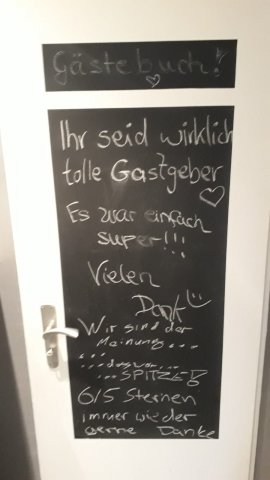 Gästebuch!
Ihr seid wirklich
tolle Gastgeber
Es war einfach
super!!!
Vielen
Dank
Wir sind der
Meinung....
...
...das war...
...SPITZE
6/5 Sternen
immer wieder
gerne Danke